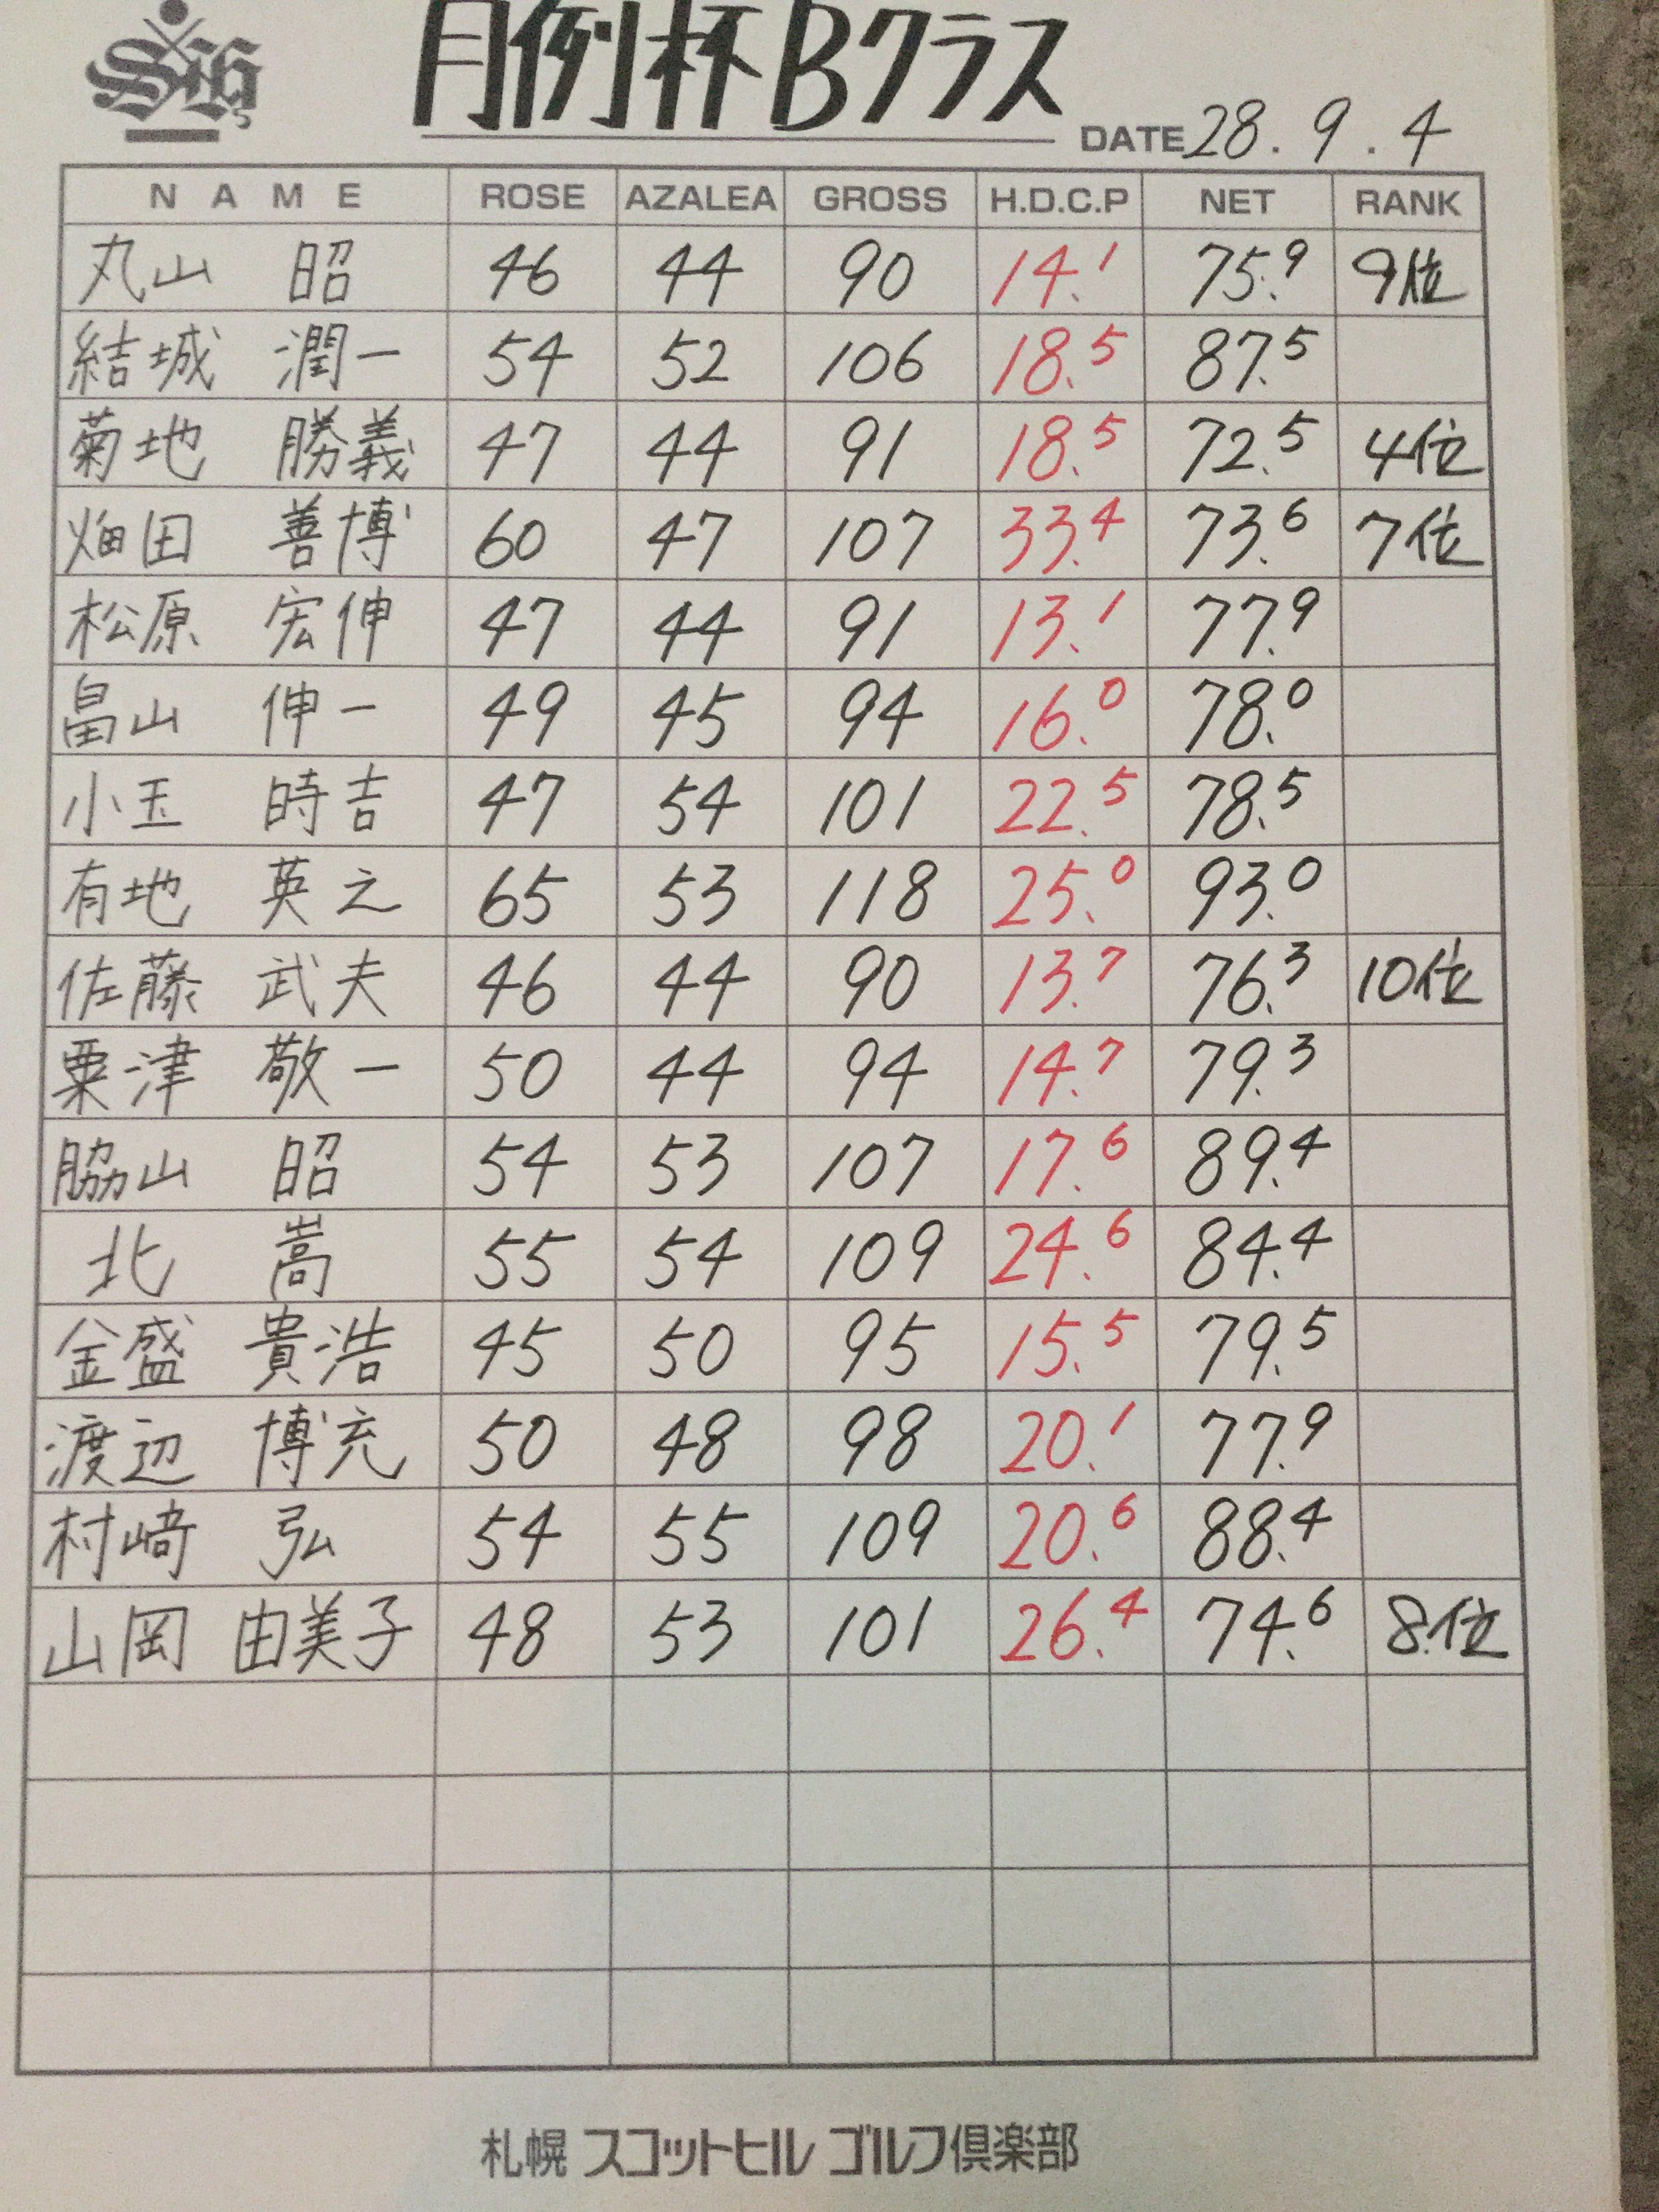 月例杯Bクラス
DATE 28.9.4
NAME ROSE AZALEA GROSS H.D.C.P NET RANK
丸山 昭 46 44 90 14.1 75.9 9位
結城 潤一 54 52 106 18.5 87.5
菊地 勝義 47 44 91 18.5 72.5 4位
畑田 善博 60 47 107 33.4 73.6 7位
松原 宏伸 47 44 91 13.1 77.9
畠山 伸一 49 45 94 16.0 78.0
小玉 時吉 47 54 101 22.5 78.5
有地 英之 65 53 118 25.0 93.0
佐藤 武夫 46 44 90 13.7 76.3 10位
粟津 敬一 50 44 94 14.7 79.3
脇山 昭 54 53 107 17.6 89.4
北 嵩 55 54 109 24.6 84.4
金盛 貴浩 45 50 95 15.5 79.5
渡辺 博充 50 48 98 20.1 77.9
村﨑 弘 54 55 109 20.6 88.4
山岡 由美子 48 53 101 26.4 74.6 8位
札幌 スコットヒル ゴルフ倶楽部